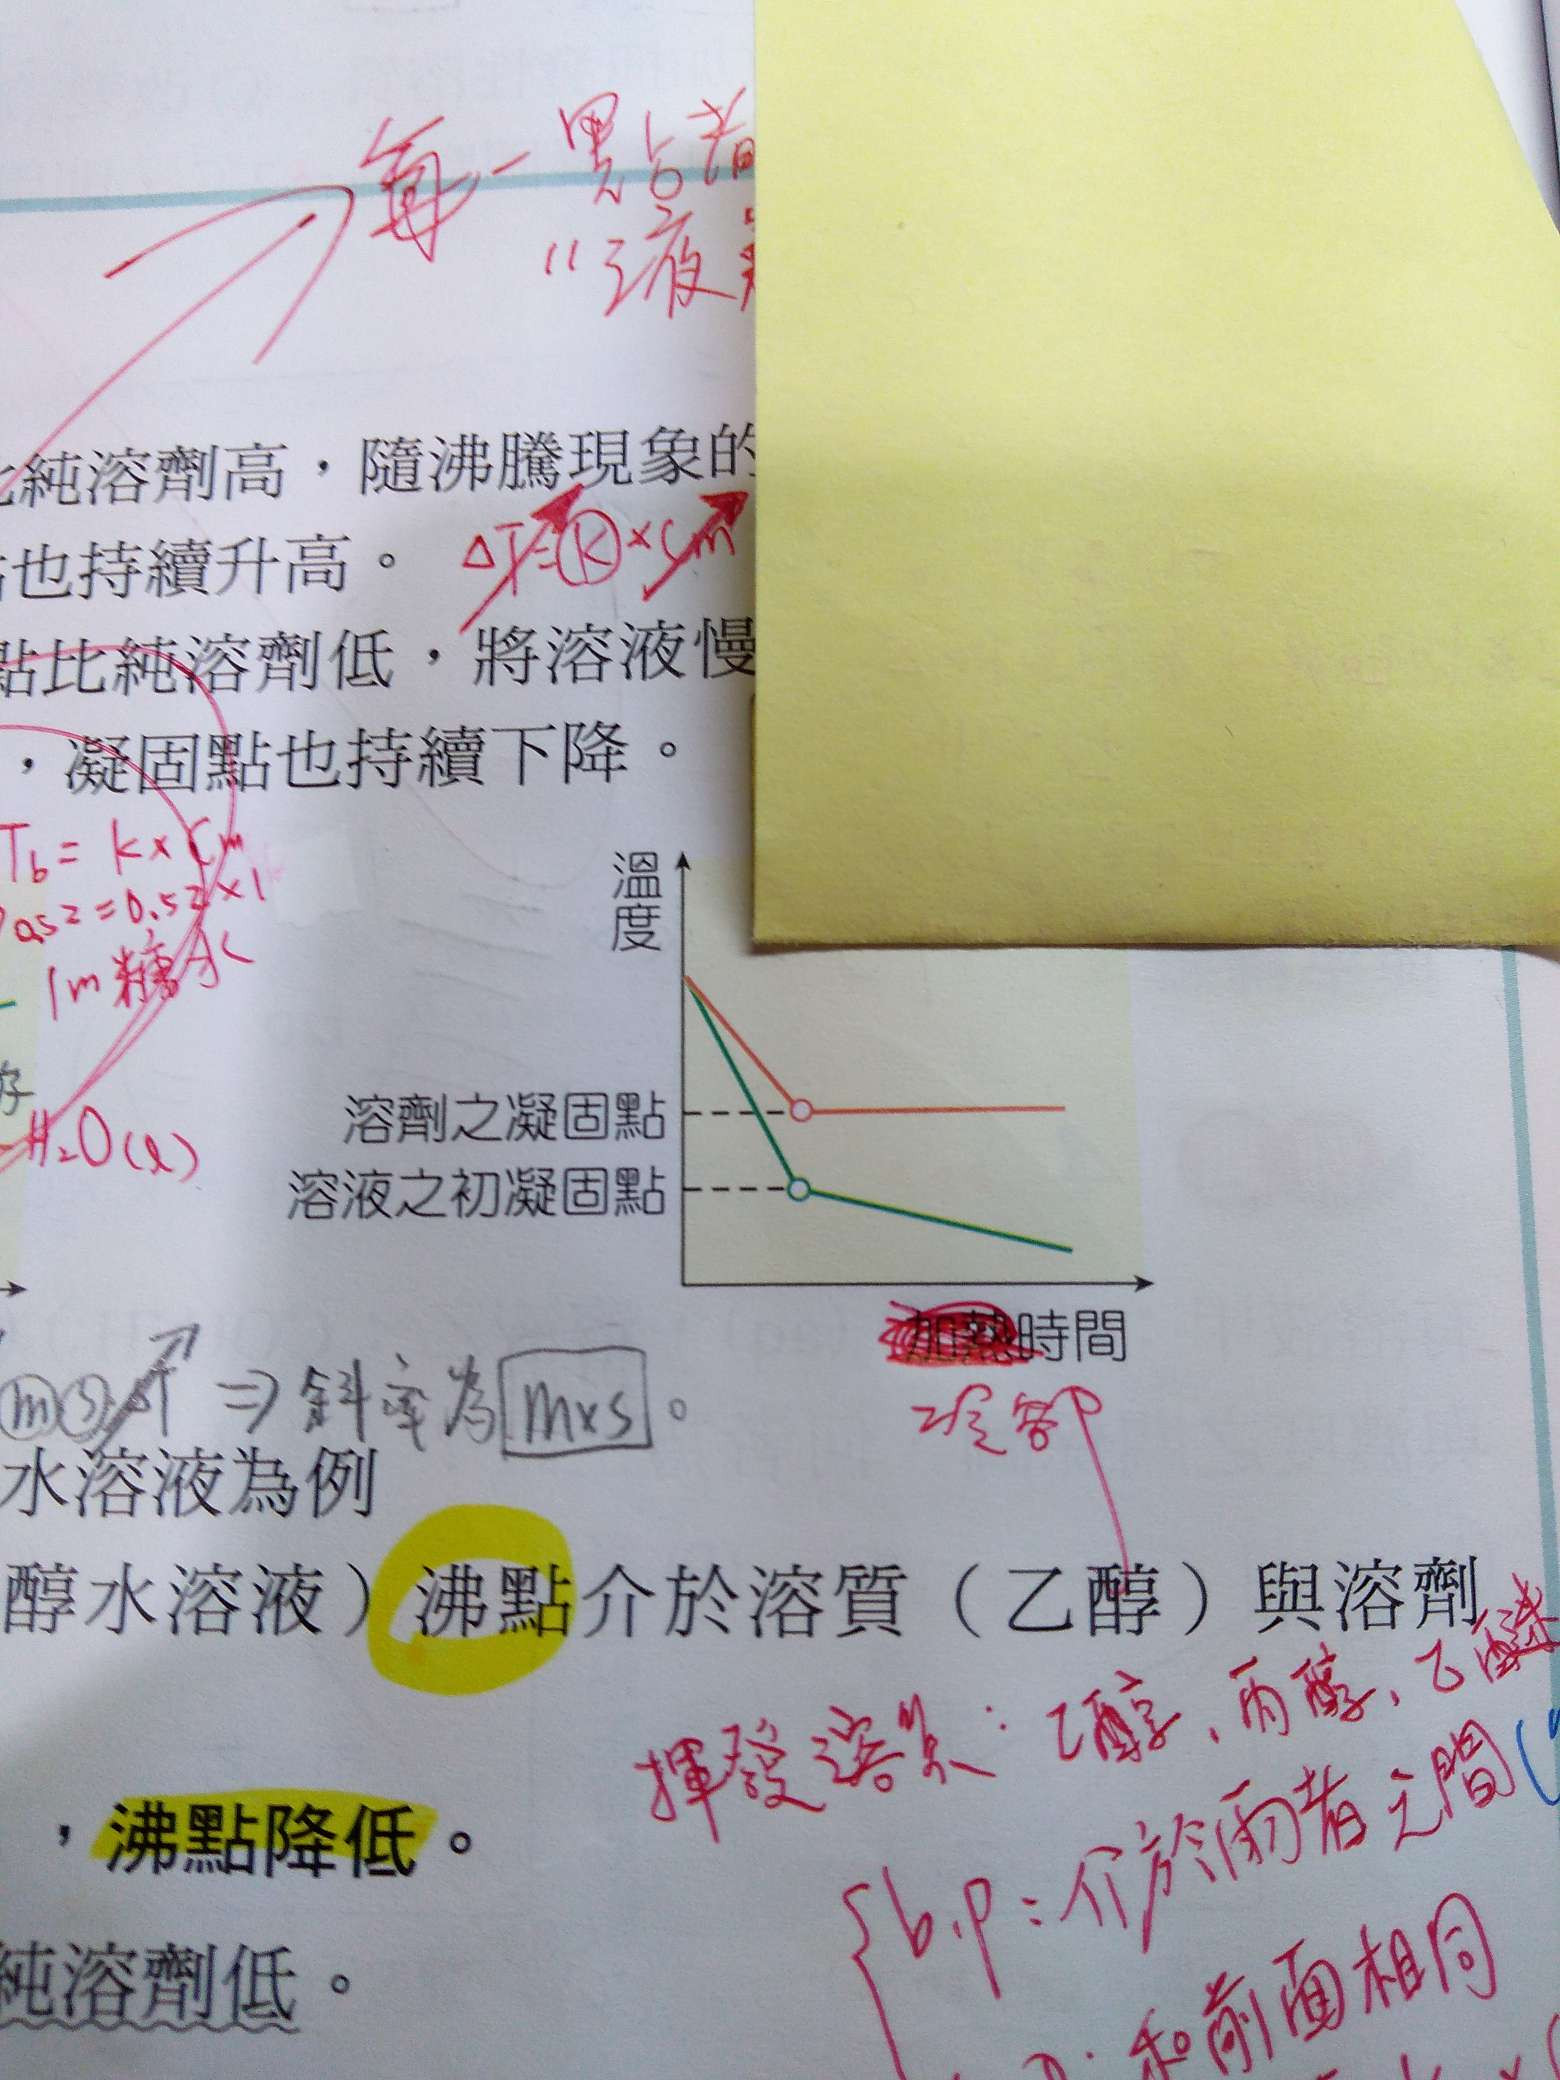 每一點
純溶劑高，隨沸騰現象的
也持續升高。 ΔT=K×Cm
點比純溶劑低，將溶液慢
，凝固點也持續下降。
Tb = K×Cm
0.52 = 0.52×1
1m 糖水
H₂O(l)
溫度
溶劑之凝固點
溶液之初凝固點
加熱時間
冷卻
m s ΔT ⇒ 斜率為 m×s。
水溶液為例
醇水溶液）沸點介於溶質（乙醇）與溶劑
揮發溶質：乙醇、丙醇、乙醚
，沸點降低。
b.p：介於兩者之間(
純溶劑低。
和前面相同